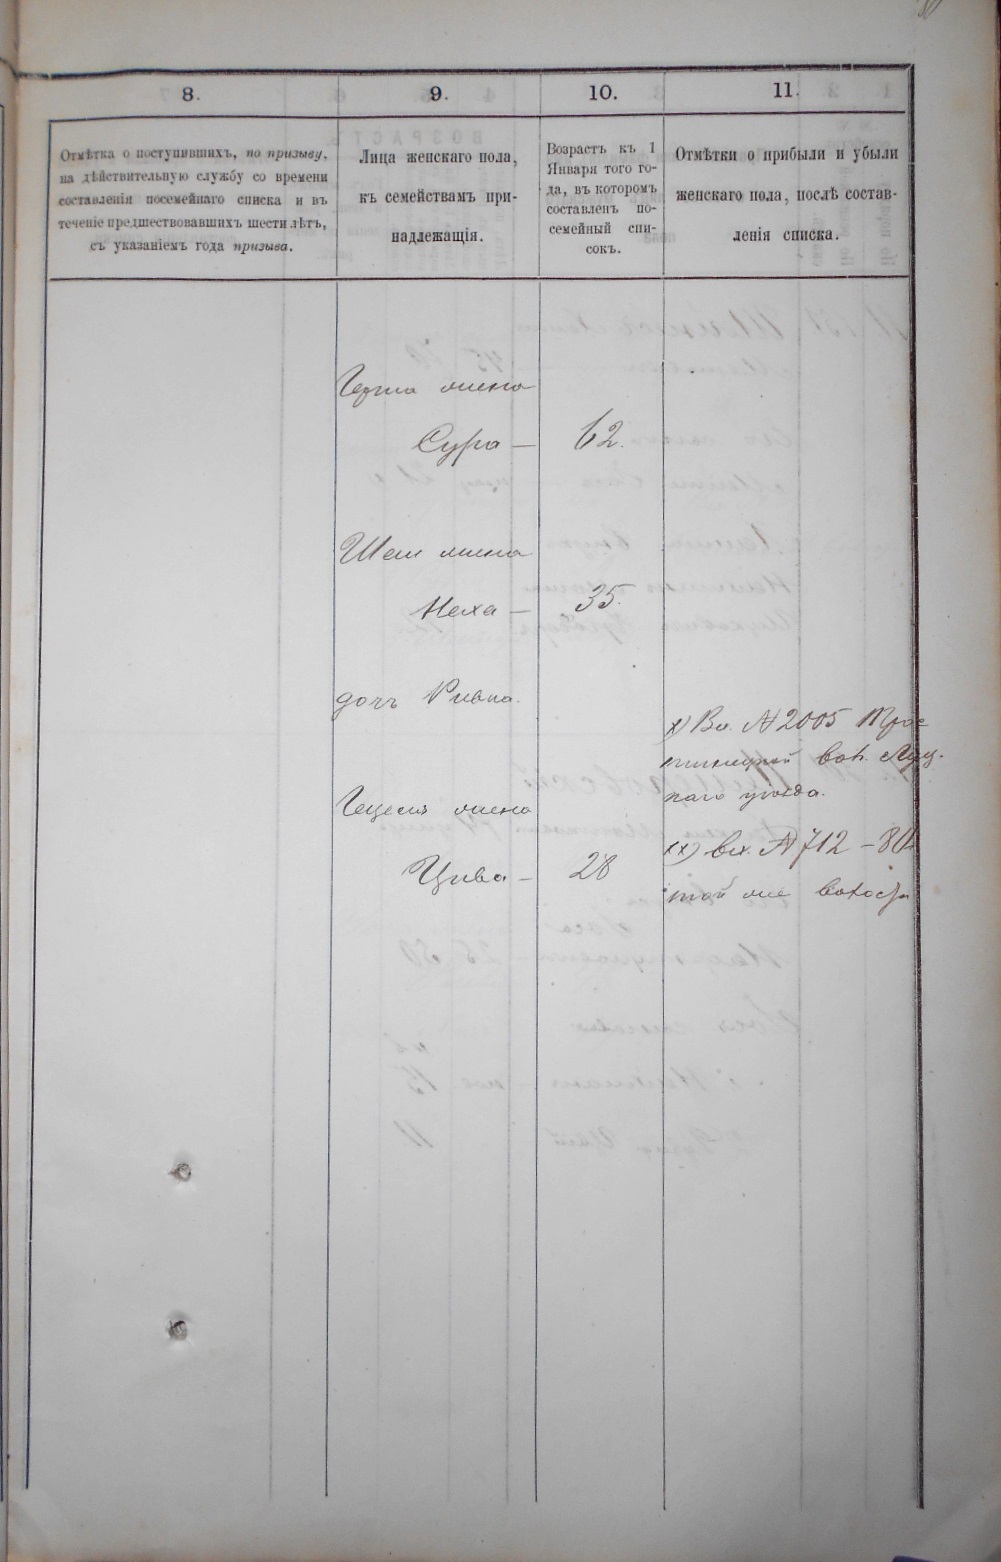 8.
9.
10.
11.
Отмѣтка о поступившихъ, по призыву,
на дѣйствительную службу со времени
составленія посемейнаго списка и въ
теченіе предшествовавшихъ шести лѣтъ,
съ указаніемъ года призыва.
Лица женскаго пола,
къ семействамъ при-
надлежащія.
Возрастъ къ 1
Января того го-
да, въ которомъ
составленъ по-
семейный спи-
сокъ.
Отмѣтки о прибыли и убыли
женскаго пола, послѣ состав-
ленія списка.
жена
Сура — 62.
жена
Неха — 35.
дочь Ривка.
жена
Цива — 28
х) Вх. № 2005
вол. Луц-
каго уѣзда.
хх) вх. № 712 —
той же волости